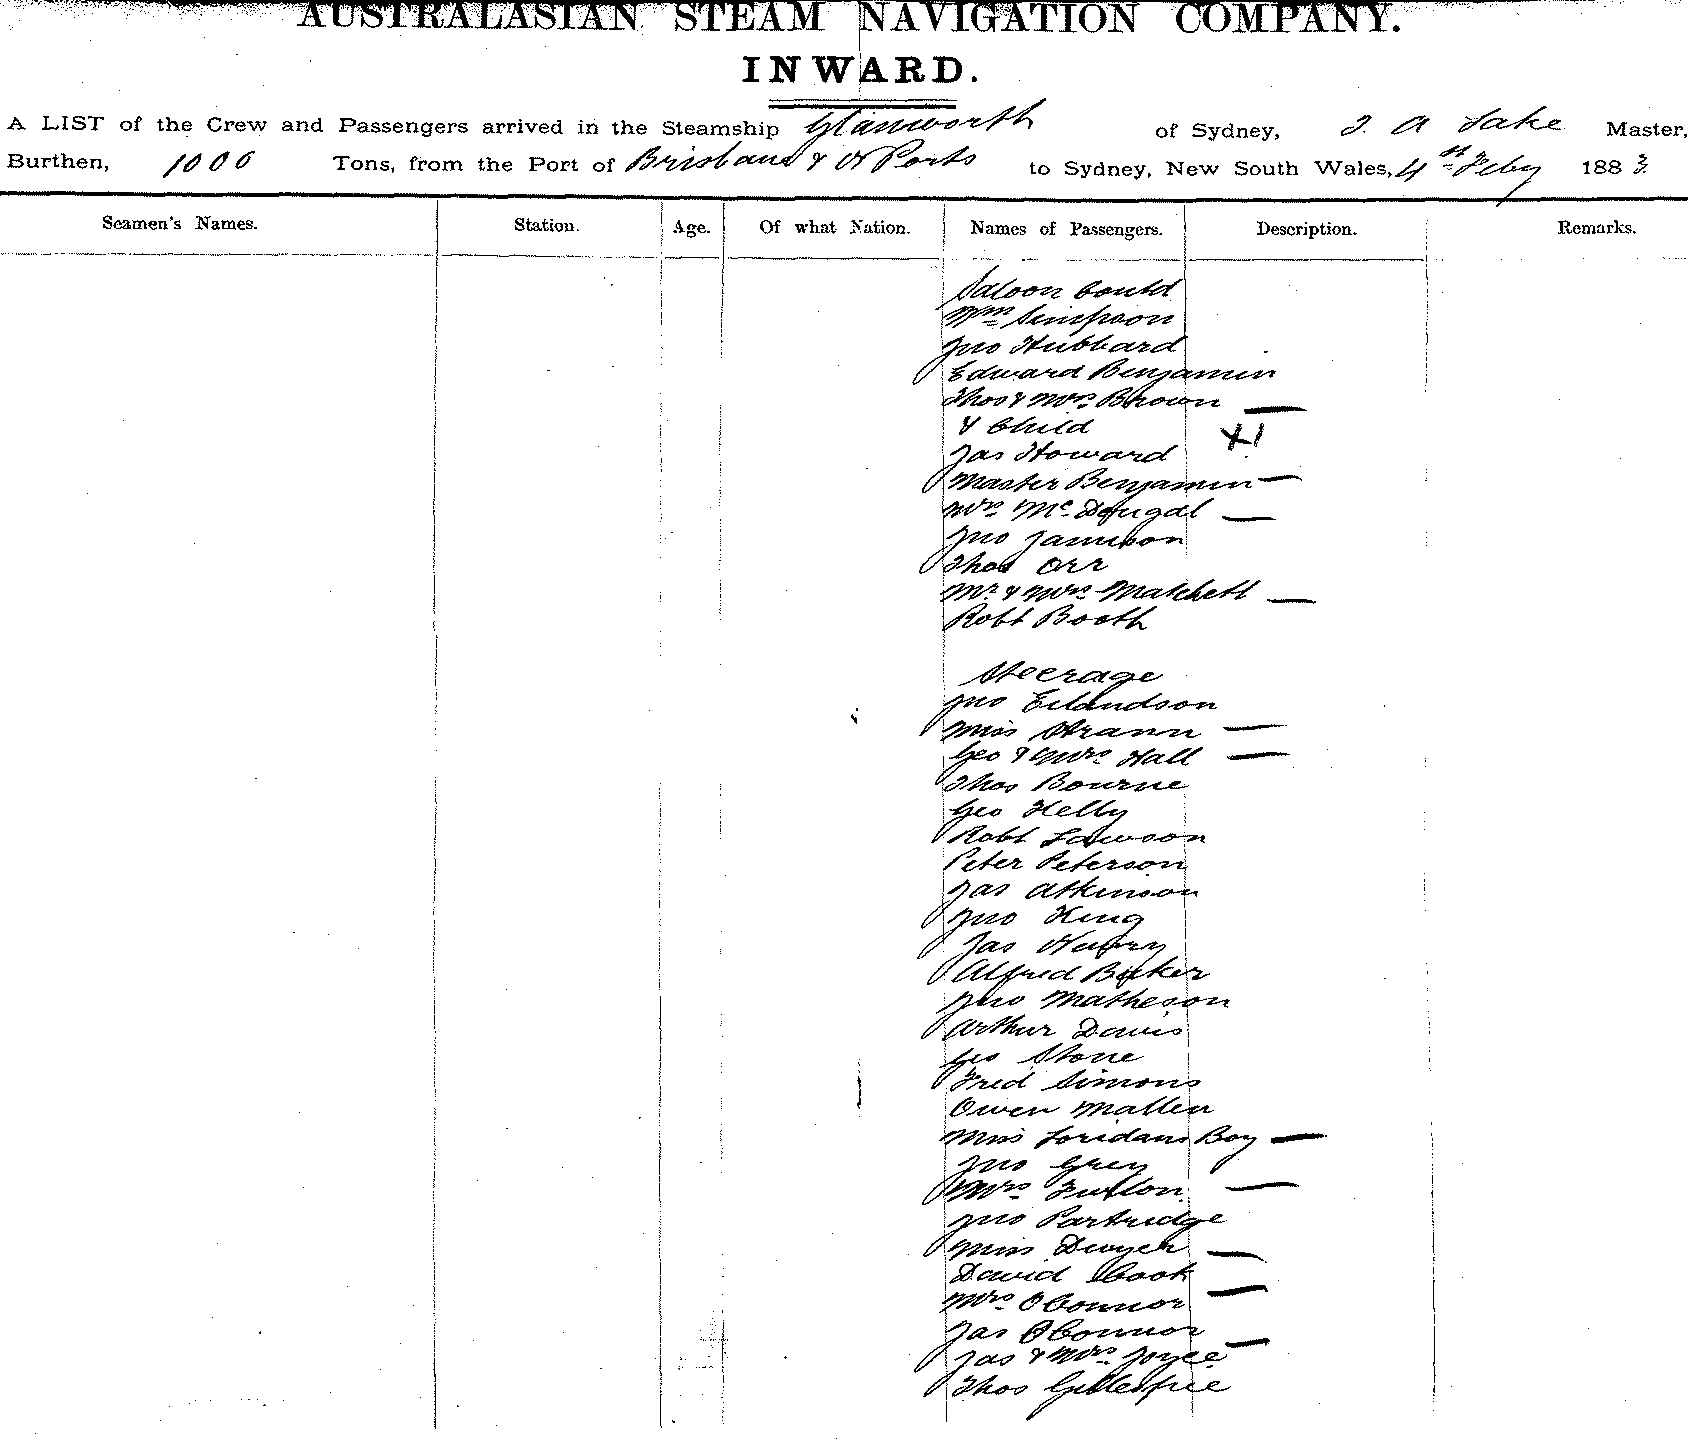 AUSTRALASIAN STEAM NAVIGATION COMPANY.
INWARD.
A LIST of the Crew and Passengers arrived in the Steamship Glanworth of Sydney, J. A Lake Master,
Burthen, 1000 Tons, from the Port of Brisbane & N Ports to Sydney, New South Wales, 4st Feby 1883
Seamen's Names. Station. Age. Of what Nation. Names of Passengers. Description. Remarks.
Saloon Contd
Wm Simpson
Jno Hubbard
Edward Benjamin
Thos & Mrs Brown —
& Child X1
Jas Howard
Master Benjamin —
Mrs McDougal —
Jno Jamieson
Thos Orr
Mr & Mrs Matchett —
Robt Booth
Steerage
Jno Erlandson
Miss Strann —
Geo & Mrs Hall —
Thos Bourne
Geo Helby
Robt Lawson
Peter Peterson
Jas Atkinson
Jno King
Jas Henry
Alfred Baker
Jno Matheson
Arthur Davis
Geo Stone
Fred Simons
Owen Mallen
Miss Loridans Boy —
Jno Grey
Mrs Furlon —
Jno Partridge
Miss Dwyer —
David Cook
Mrs OConnor —
Jas OConnor
Jas & Mrs Joyce —
Thos Gillespie